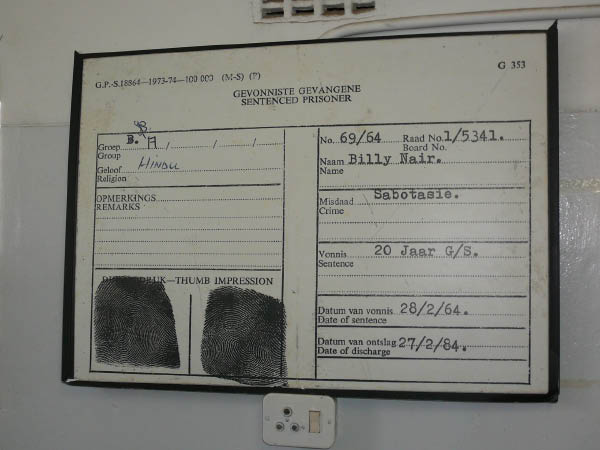 G.P.-S.18864—1973-74—100 000 (M-S) (P)
G 353
GEVONNISTE GEVANGENE
SENTENCED PRISONER
B.
Groep A / / /
Group
Geloof Hindu
Religion
OPMERKINGS
REMARKS
DRUK—THUMB IMPRESSION
No. 69/64 Raad No. 1/5341.
Board No.
Naam Billy Nair.
Name
Misdaad Sabotasie.
Crime
Vonnis 20 Jaar G/S.
Sentence
Datum van vonnis 28/2/64.
Date of sentence
Datum van ontslag 27/2/84.
Date of discharge